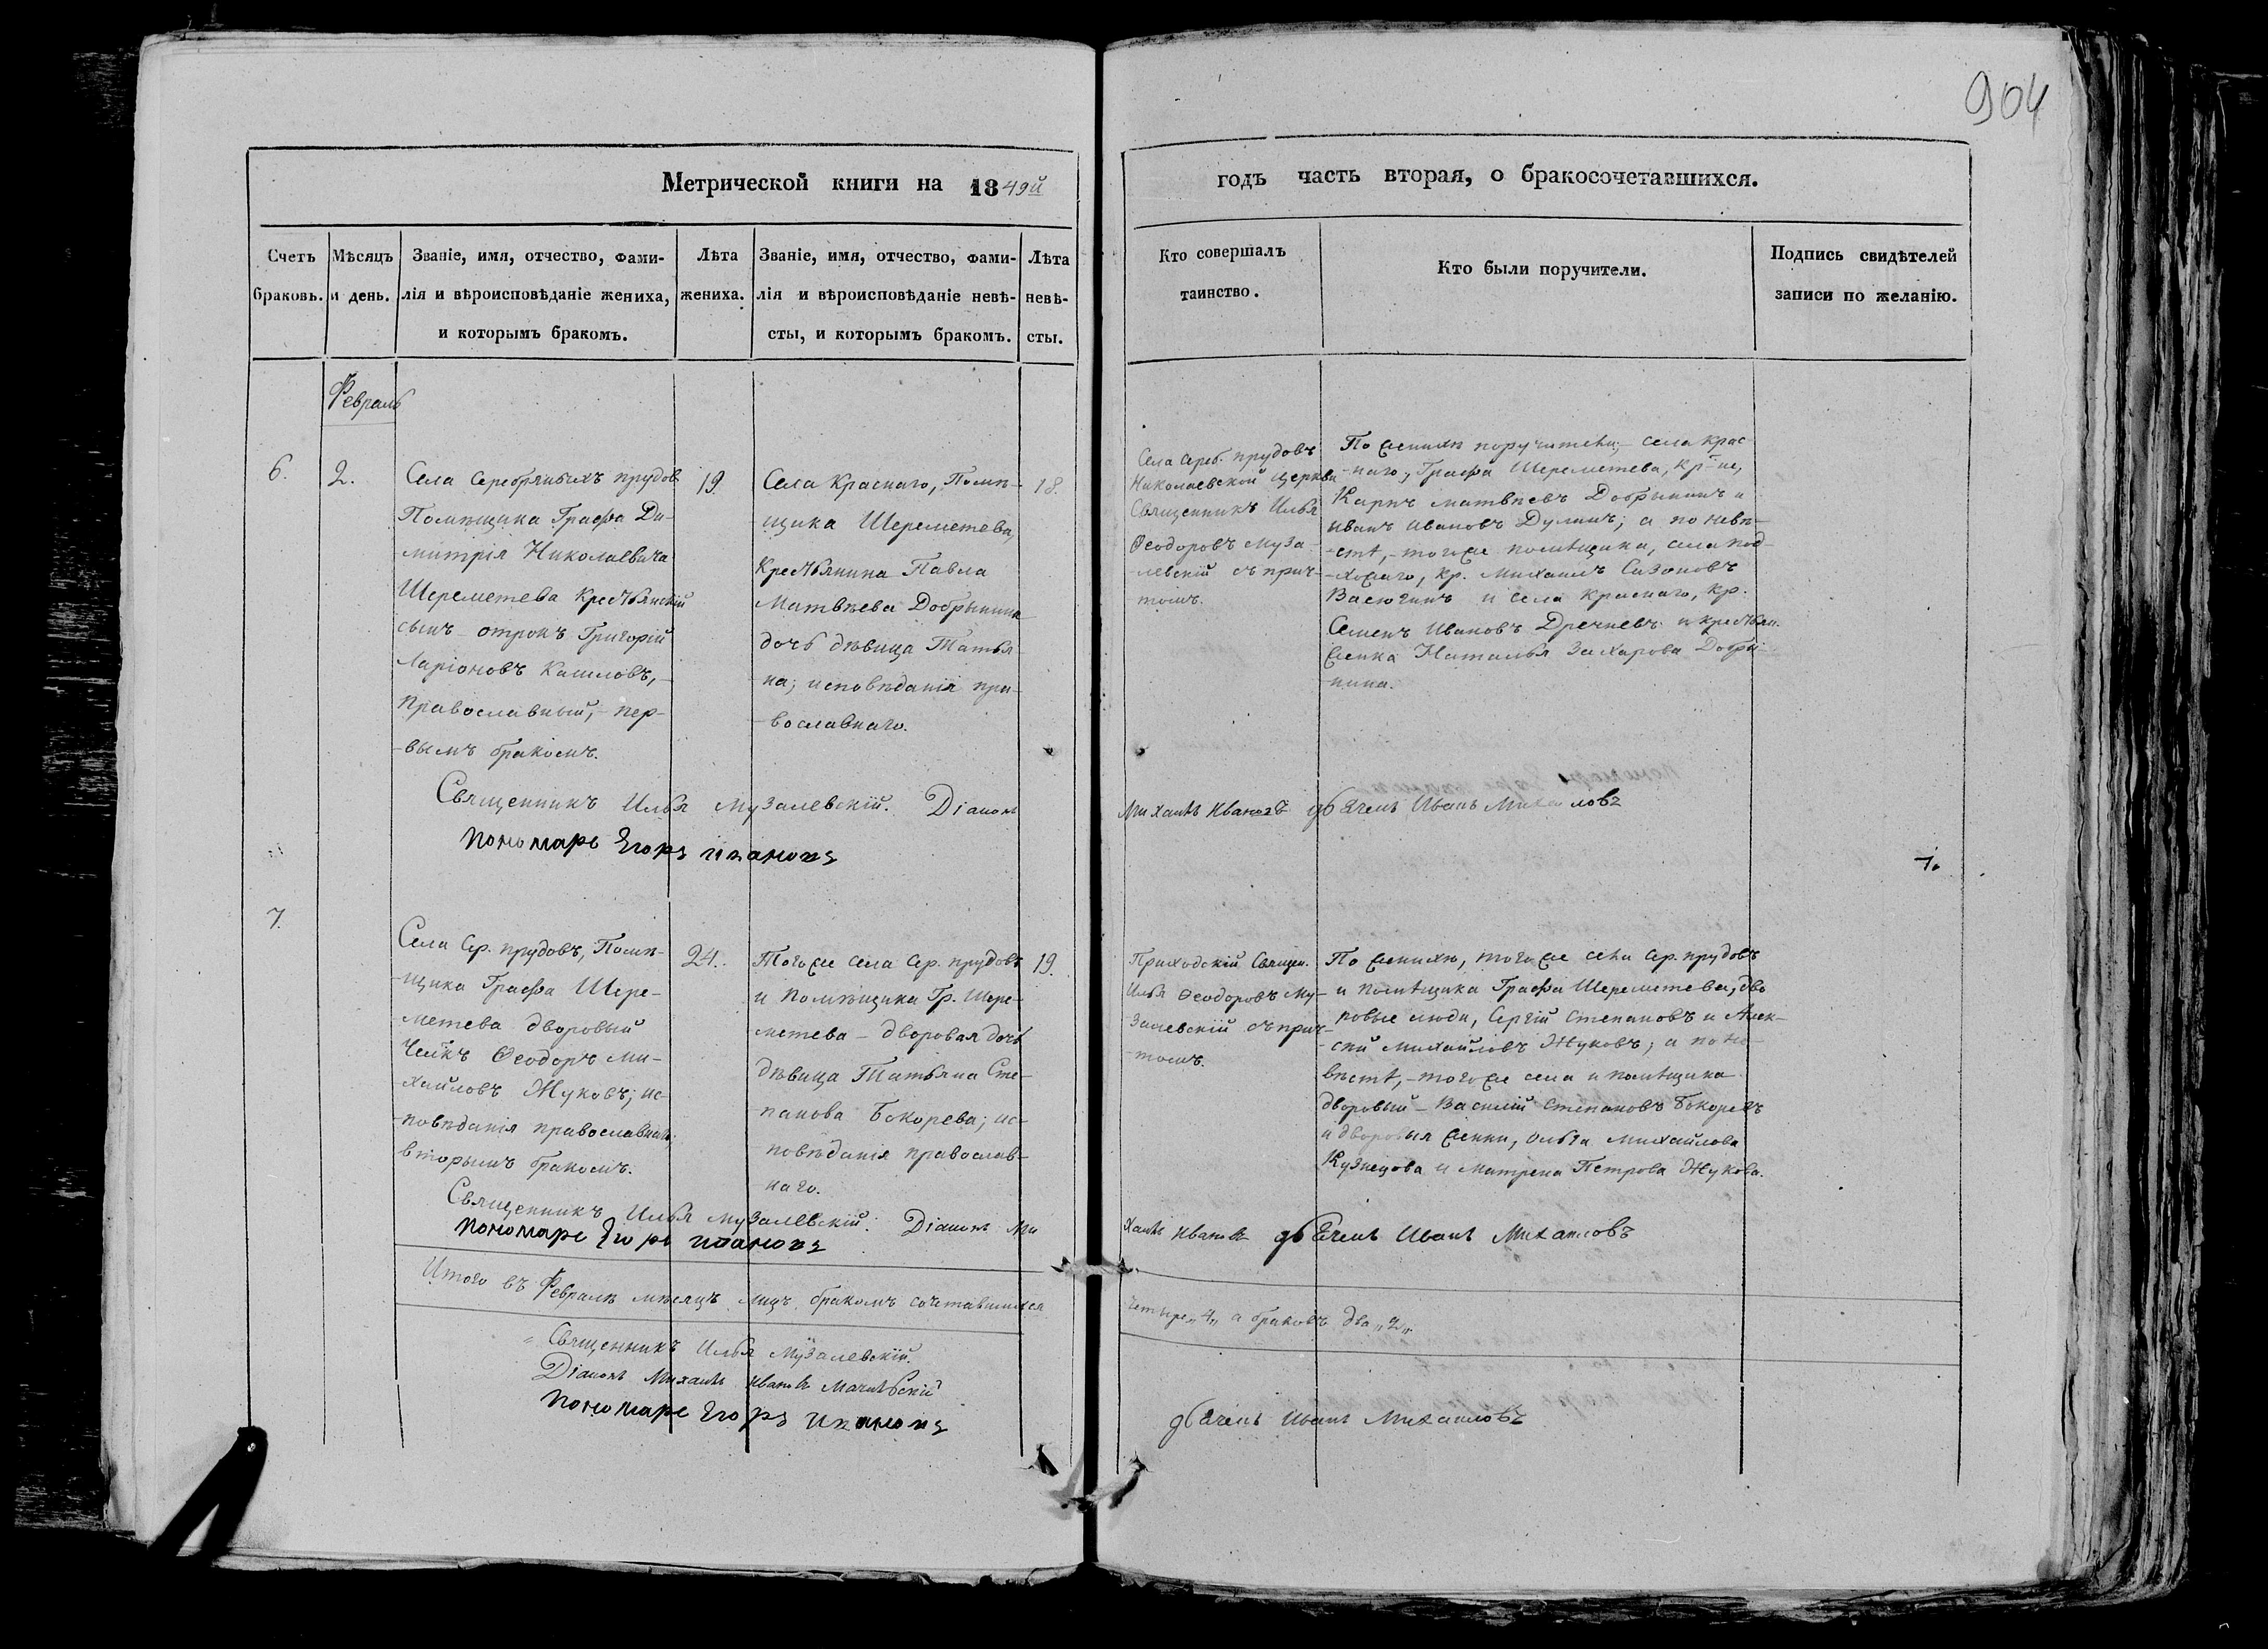 904
Метрической книги на 1849й
годъ часть вторая, о бракосочетавшихся.
Счетъ
браковъ.
Мѣсяцъ
и день.
Званіе, имя, отчество, фами-
лія и вѣроисповѣданіе жениха,
и которымъ бракомъ.
Лѣта
жениха.
Званіе, имя, отчество, фами-
лія и вѣроисповѣданіе невѣ-
сты, и которымъ бракомъ.
Лѣта
невѣ-
сты.
Кто совершалъ
таинство.
Кто были поручители.
Подпись свидѣтелей
записи по желанію.
Февраль
6.
2.
Села Серебряныхъ прудов
Помѣщика Графа Ди-
-митрія Николаевича
Шереметева крестьянскій
сынъ - отрокъ Григорій
Ларіоновъ
Православный, - пер-
-вымъ бракомъ.
19.
Села Краснаго, Помѣ-
-щика Шереметева,
Крестьянина Павла
Матвѣева Добрынина
дочь дѣвица Татья-
-на; исповѣданія пра-
-вославнаго.
18.
Села Сереб. прудовъ
Николаевской Церкви
Священникъ Илья
Ѳеодоровъ Муза-
-левскій съ прич-
-томъ.
По женихѣ поручители; - села Крас-
-наго, Графа Шереметева, кр-не,
Карпъ Матвѣевъ Добрынинъ и
Иванъ Ивановъ Дулинъ; а по невѣ-
-стѣ, - тогоже помѣщика, села Под-
-хожаго, кр. Михаилъ Сазоновъ
Васютинъ и села Краснаго, кр.
Семенъ Ивановъ и крестьян.
женка Наталья Захарова Добры-
-нина.
Священникъ Илья Музалевскій. Діаконъ
Михаилъ Ивановъ дьячекъ Иванъ Михаиловъ
Пономарь Егоръ Ивановъ
7.
Села Сер. прудовъ, Помѣ-
-щика Графа Шере-
-метева дворовый
Челкъ Ѳеодоръ Ми-
-хайловъ Жуковъ; ис-
-повѣданія православнаго.
вторымъ бракомъ.
24.
Тогоже села Сер. прудовъ
и Помѣщика Гр. Шере-
-метева - дворовая дочь
дѣвица Татьяна Сте-
-панова Бокорева; ис-
-повѣданія православ-
-наго.
19.
Приходскій Священ.
Илья Ѳеодоровъ Му-
-залевскій съ прич-
-томъ.
По женихѣ, тогоже села Сер. прудовъ
и помѣщика Графа Шереметева, дво
-ровые люди, Сергій Степановъ и Алек-
-сѣй Михайловъ Жуковъ; а по не-
вѣстѣ, - тогоже села и помѣщика
дворовый - Василій Степановъ Бокоревъ
и дворовыя женки, Ольга Михайлова
Кузнецова и Матрена Петрова Жукова.
Священникъ Илья Музалевскій. Діаконъ Ми
хаилъ Ивановъ дьячекъ Иванъ Михаиловъ
Пономарь Егоръ Ивановъ
Итого въ Февралѣ мѣсяцѣ лицъ бракомъ сочетавшихся
четыре „4„ а браковъ два „2„.
Священникъ Илья Музалевскій.
Діаконъ Михаилъ Ивановъ
дьячекъ Иванъ Михаиловъ
Пономарь Егоръ Ивановъ